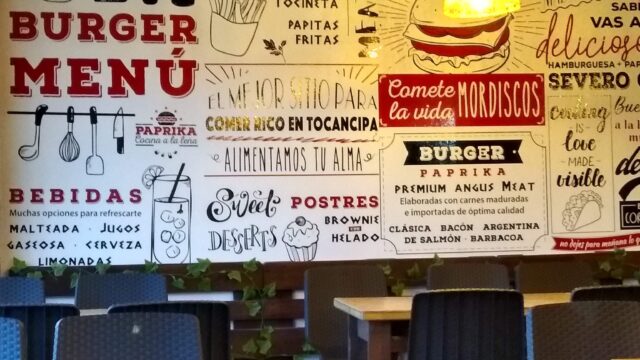 BURGER
MENÚ
PAPRIKA
Cocina a la leña
BEBIDAS
Muchas opciones para refrescarte
MALTEADA · JUGOS
GASEOSA · CERVEZA
LIMONADAS
TOCINETA
PAPITAS
FRITAS
EL MEJOR SITIO PARA
COMER RICO EN TOCANCIPA
ALIMENTAMOS TU ALMA
Sweet
DESSERTS
POSTRES
BROWNIE
CON
HELADO
Comete
la vida
MORDISCOS
BURGER
PAPRIKA
PREMIUM ANGUS MEAT
Elaboradas con carnes maduradas
e importadas de óptima calidad
CLÁSICA BACÓN ARGENTINA
DE SALMÓN · BARBACOA
VAS A
deliciosa
HAMBURGUESA + PAP
SEVERO
cooking
is
love
MADE
visible
a la
no dejes para mañana lo